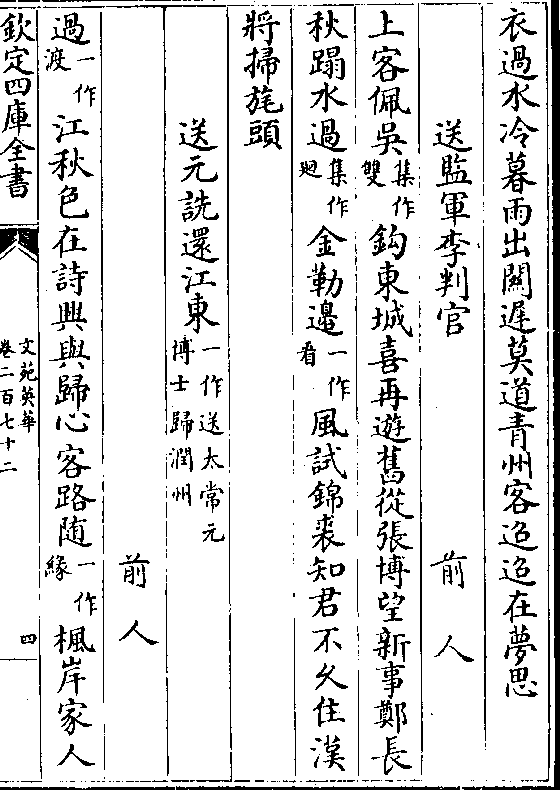 衣過水冷暮雨出關遲莫道青州客迢迢在夢思
送監軍李判官　前人
上客佩吳集作雙鈎東城喜再遊舊從張博望新事鄭長
秋蹋水過集作迴金勒邊一作看風試錦裘知君不久住漢
將掃旄頭
送元詵還江東一作送太常元博士歸潤州
前人
過一作渡江秋色在詩興與歸心客路随一作緣楓岸家人
欽定四庫全書
文苑英華
卷二百七十二
四